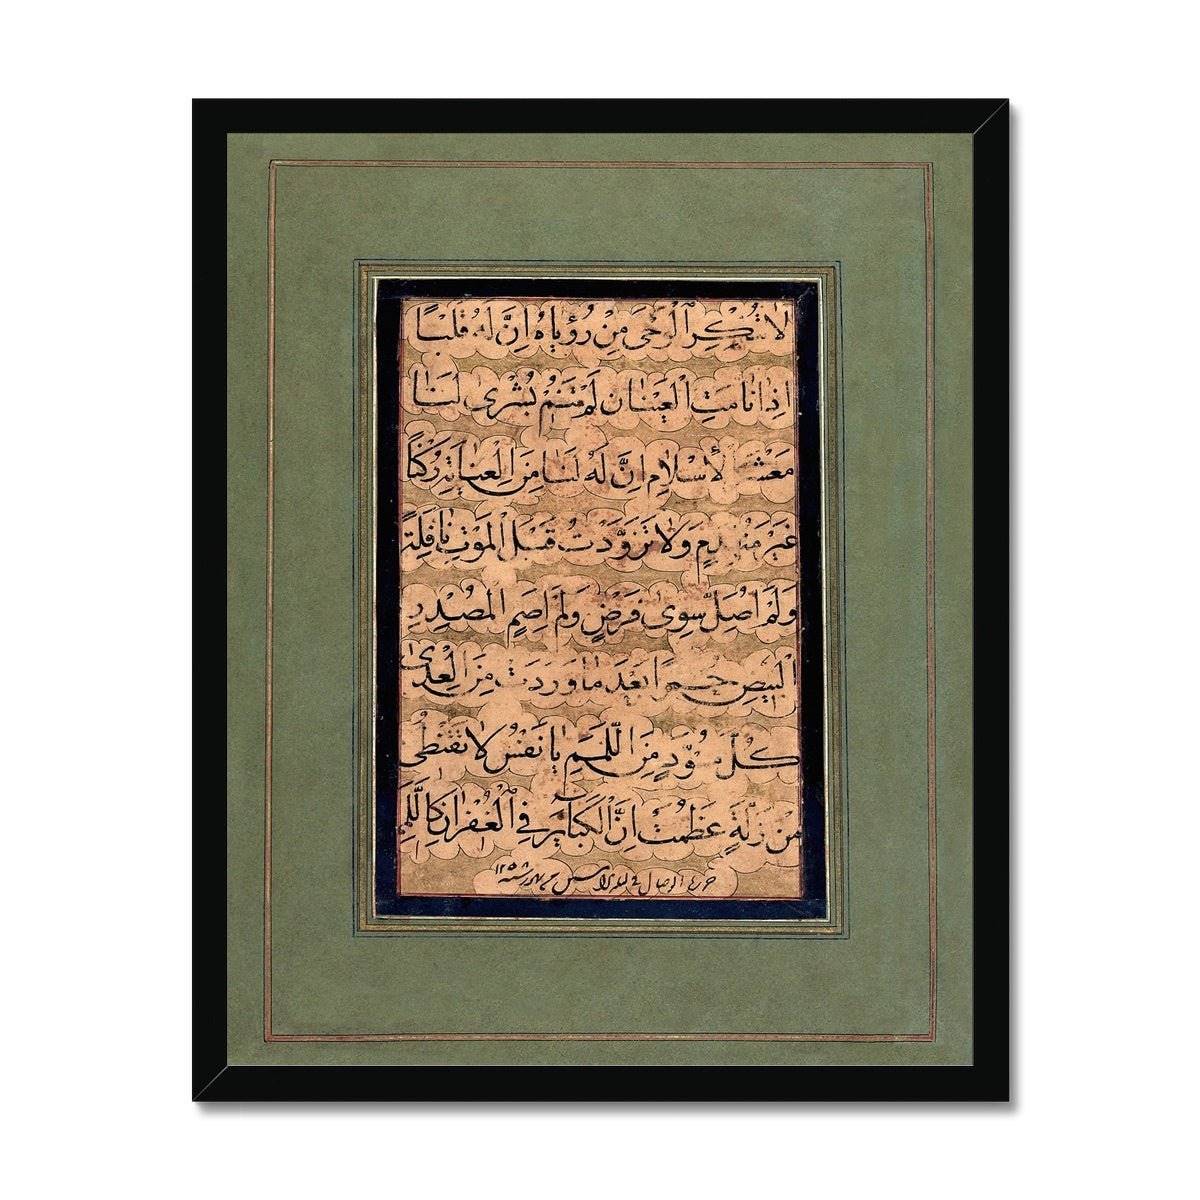 لَا تُنْكِرِ الْوَحْيَ مِنْ رُؤْيَاهُ اِنَّ لَهُ قَلْبًا
اِذَا نَامَتِ الْعَيْنَانِ لَمْ يَنَمِ بُشْرَى لَنَا
مَعْشَرَ الْأِسْلَامِ اِنَّ لَهُ لَنَا مِنَ الْعِنَايَةِ رُكْنًا
غَيْرَ مُنْهَدِمٍ وَلَا تَزَوَّدْتُ قَبْلَ الْمَوْتِ نَافِلَةً
وَلَمْ اُصَلِّ سِوَى فَرْضٍ وَلَمْ اَصُمِ الْمُصْدِرِ
الْبِيْضِ حُمْرًا بَعْدَ مَا وَرَدَتْ مِنَ الْعِدَى
كُلَّ مُسْوَدٍّ مِنَ اللِّمَمِ يَا نَفْسُ لَا تَقْنَطِى
مِنْ زَلَّةٍ عَظُمَتْ اِنَّ الْكَبَائِرَ فِي الْغُفْرَانِ كَاللَّمَمِ
الوصال فى